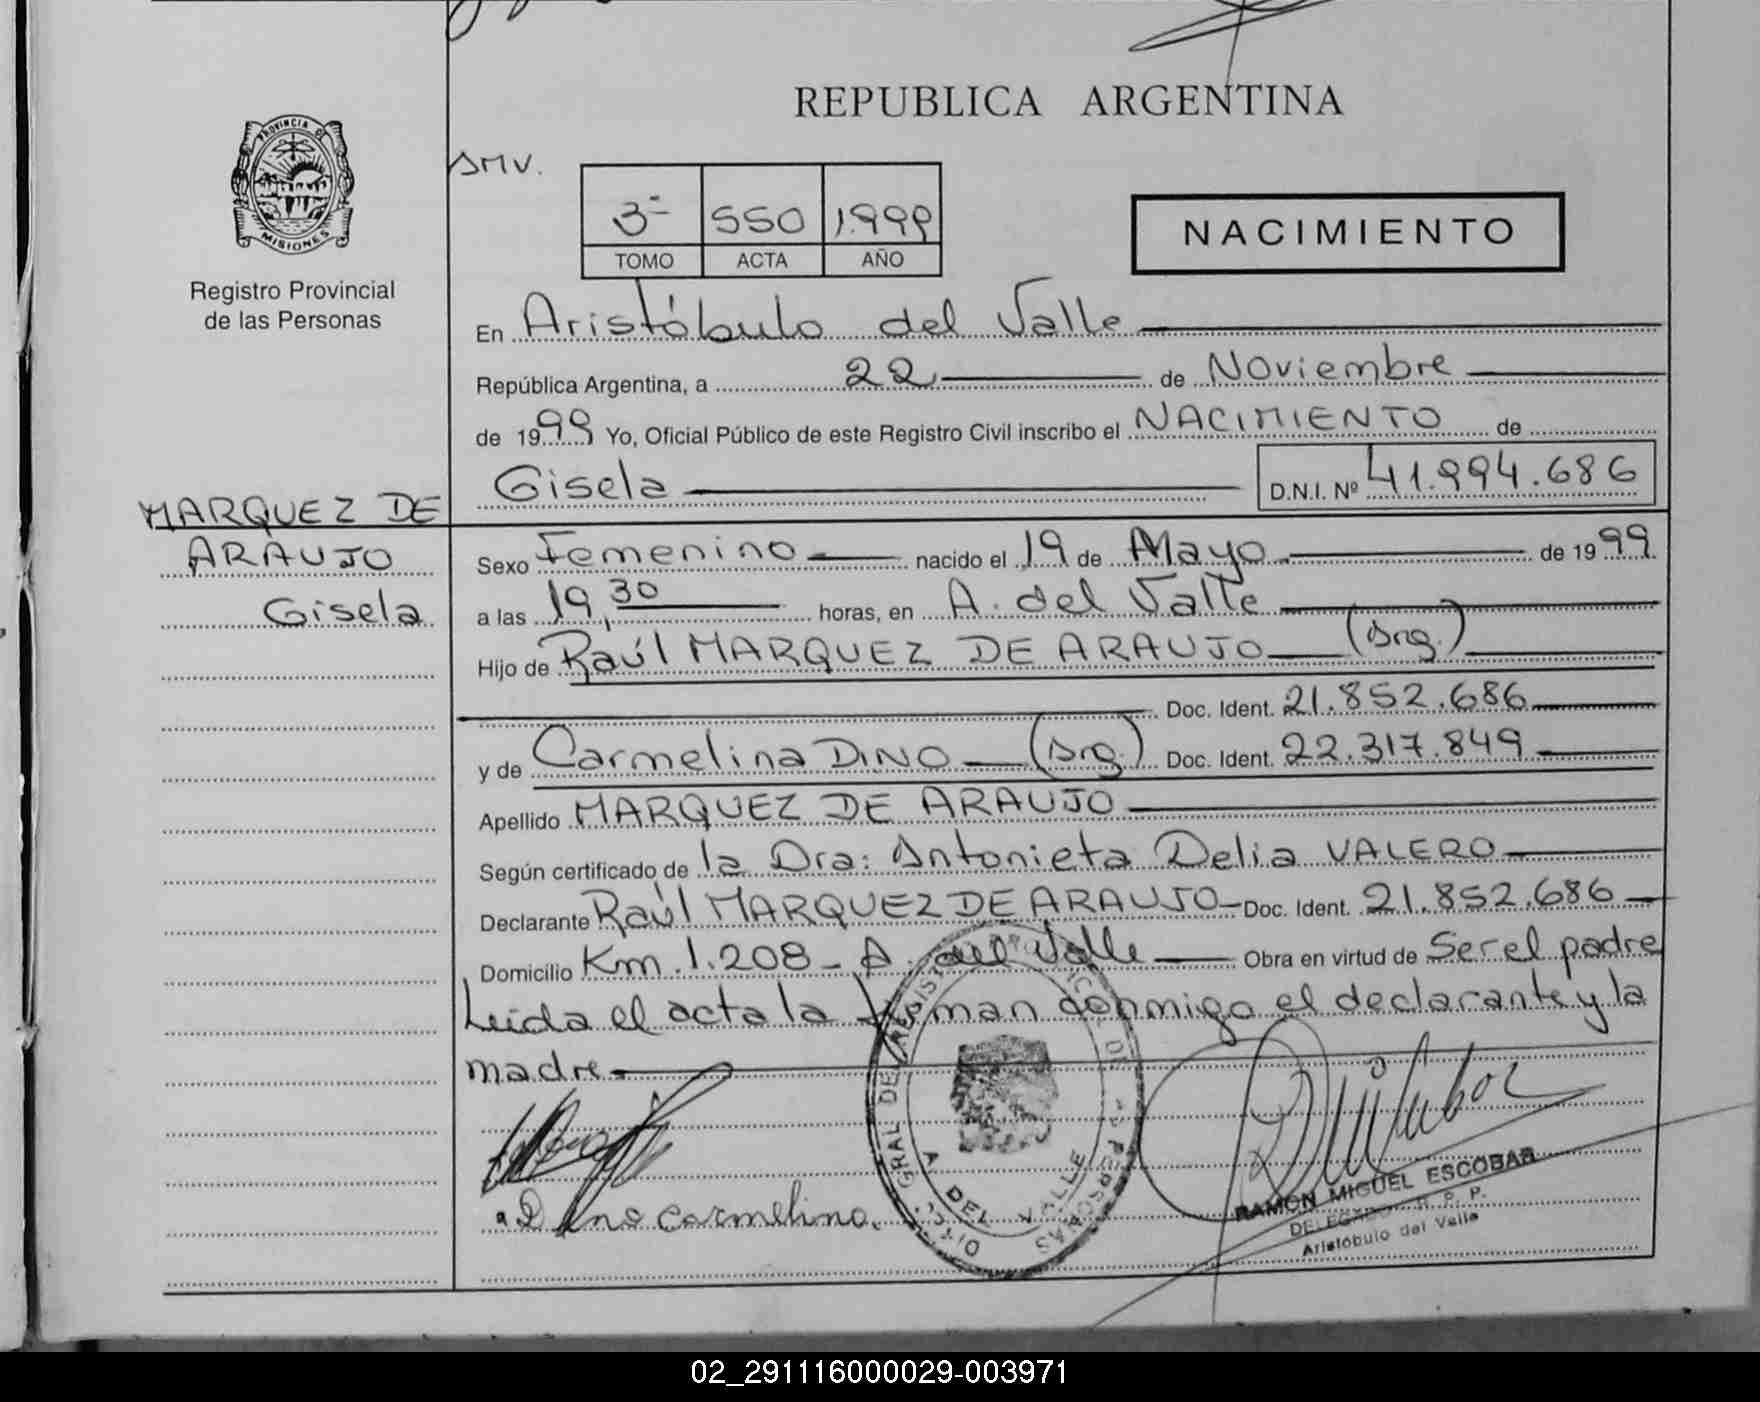 REPUBLICA ARGENTINA
PROVINCIA DE
MISIONES
Registro Provincial
de las Personas
SMV.
3ª 550 1.999
TOMO ACTA AÑO
NACIMIENTO
En Aristóbulo del Valle
República Argentina, a 22 de Noviembre
de 1999 Yo, Oficial Público de este Registro Civil inscribo el NACIMIENTO de
Gisela D.N.I. Nº 41.994.686
MARQUEZ DE
ARAUJO
Gisela
Sexo Femenino nacido el 19 de Mayo de 1999
a las 19,30 horas, en A. del Valle
Hijo de Raúl MARQUEZ DE ARAUJO (Arg.)
Doc. Ident. 21.852.686
y de Carmelina DINO (Arg.) Doc. Ident. 22.317.849
Apellido MARQUEZ DE ARAUJO
Según certificado de la Dra: Antonieta Delia VALERO
Declarante Raúl MARQUEZ DE ARAUJO Doc. Ident. 21.852.686
Domicilio Km. 1.208 - A. del Valle Obra en virtud de Ser el padre
Leída el acta la firman conmigo el declarante y la
madre
Dino Carmelina.
A DEL VALLE
RAMON MIGUEL ESCOBAR
DELEGADO R. P. P.
Aristóbulo del Valle
02_291116000029-003971